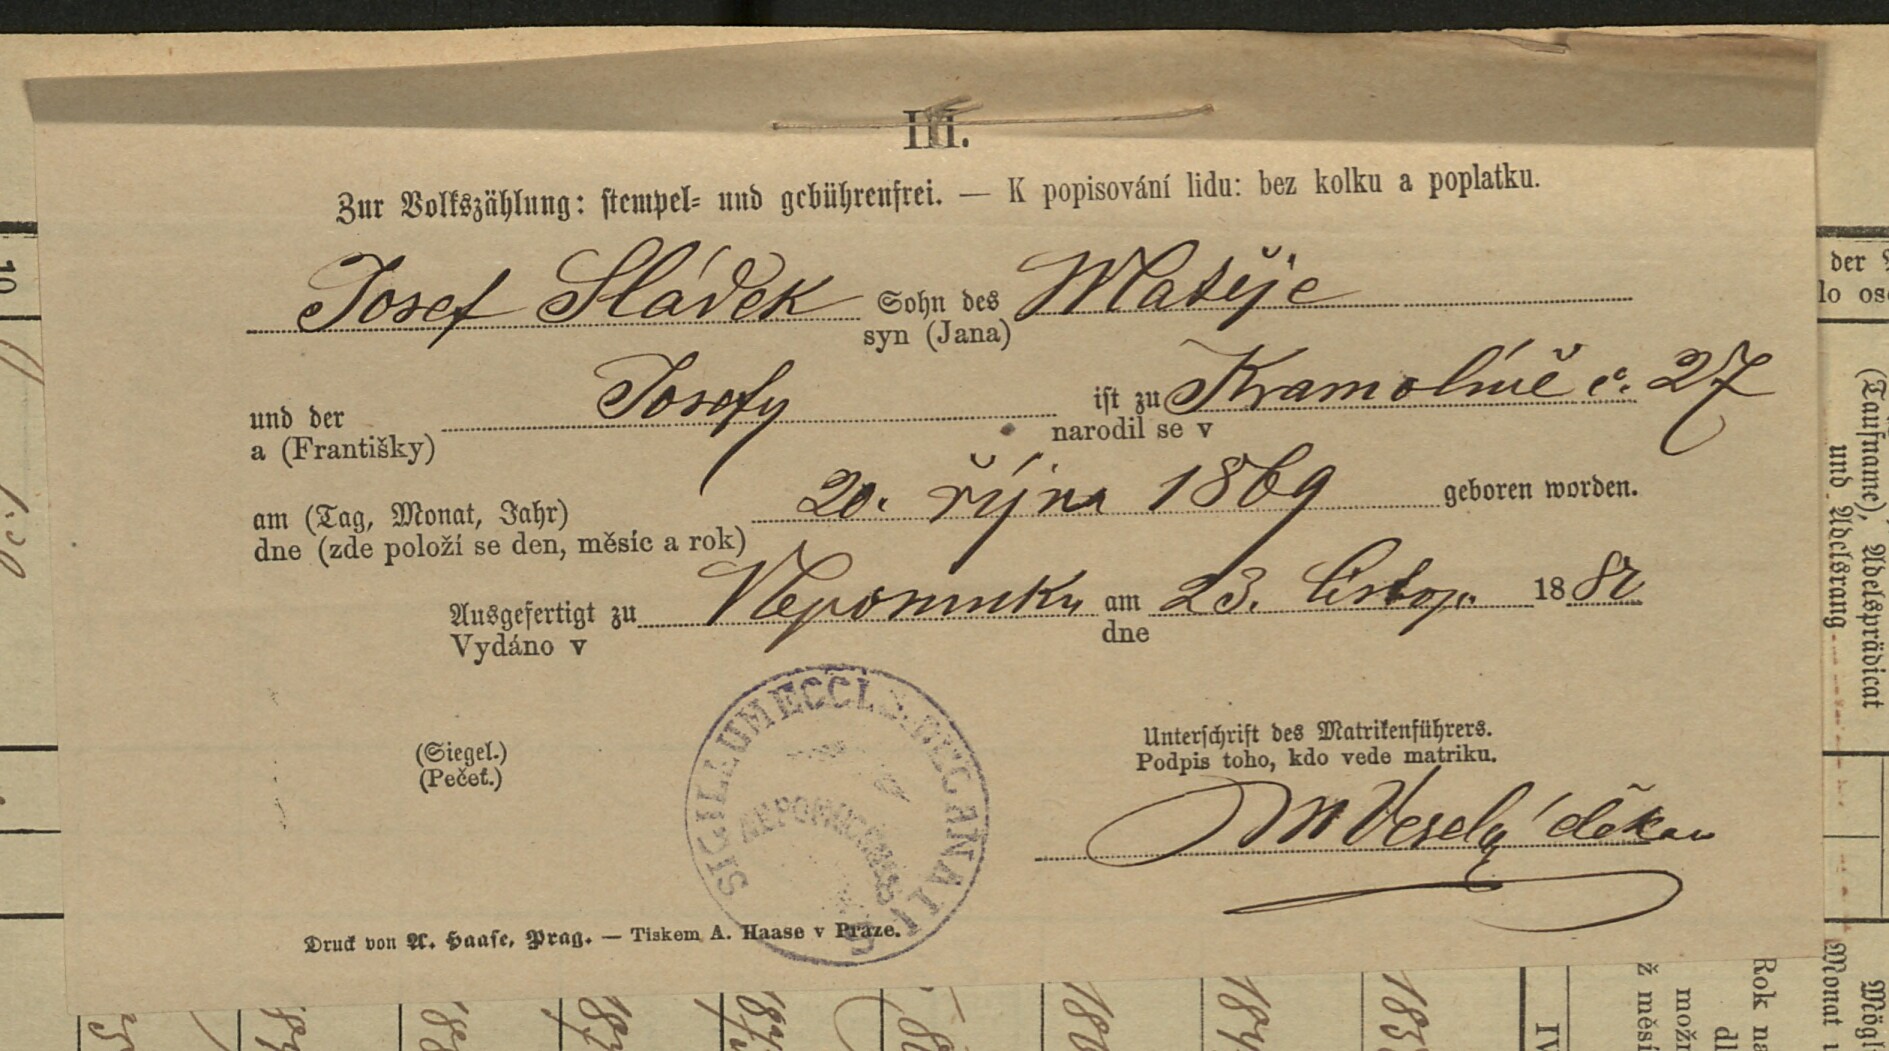 III.
Zur Volkszählung: stempel- und gebührenfrei. — K popisování lidu: bez kolku a poplatku.
Josef Sládek Sohn des Matěje
syn (Jana)
und der Josefy ist zu Kramolíně č. 27
a (Františky) narodil se v
am (Tag, Monat, Jahr) 20. října 1869 geboren worden.
dne (zde položí se den, měsíc a rok)
Ausgefertigt zu Nepomuku am 23. listop. 18
Vydáno v dne
(Siegel.)
(Pečeť.)
SIGILLUM ECCL.
Unterschrift des Matrikenführers.
Podpis toho, kdo vede matriku.
Veselý děkan
Druck von A. Haase, Prag. — Tiskem A. Haase v Praze.
10
der
lo
(Taufname), Adelsprädicat
und Adelsrang
Rok
Monat
IV